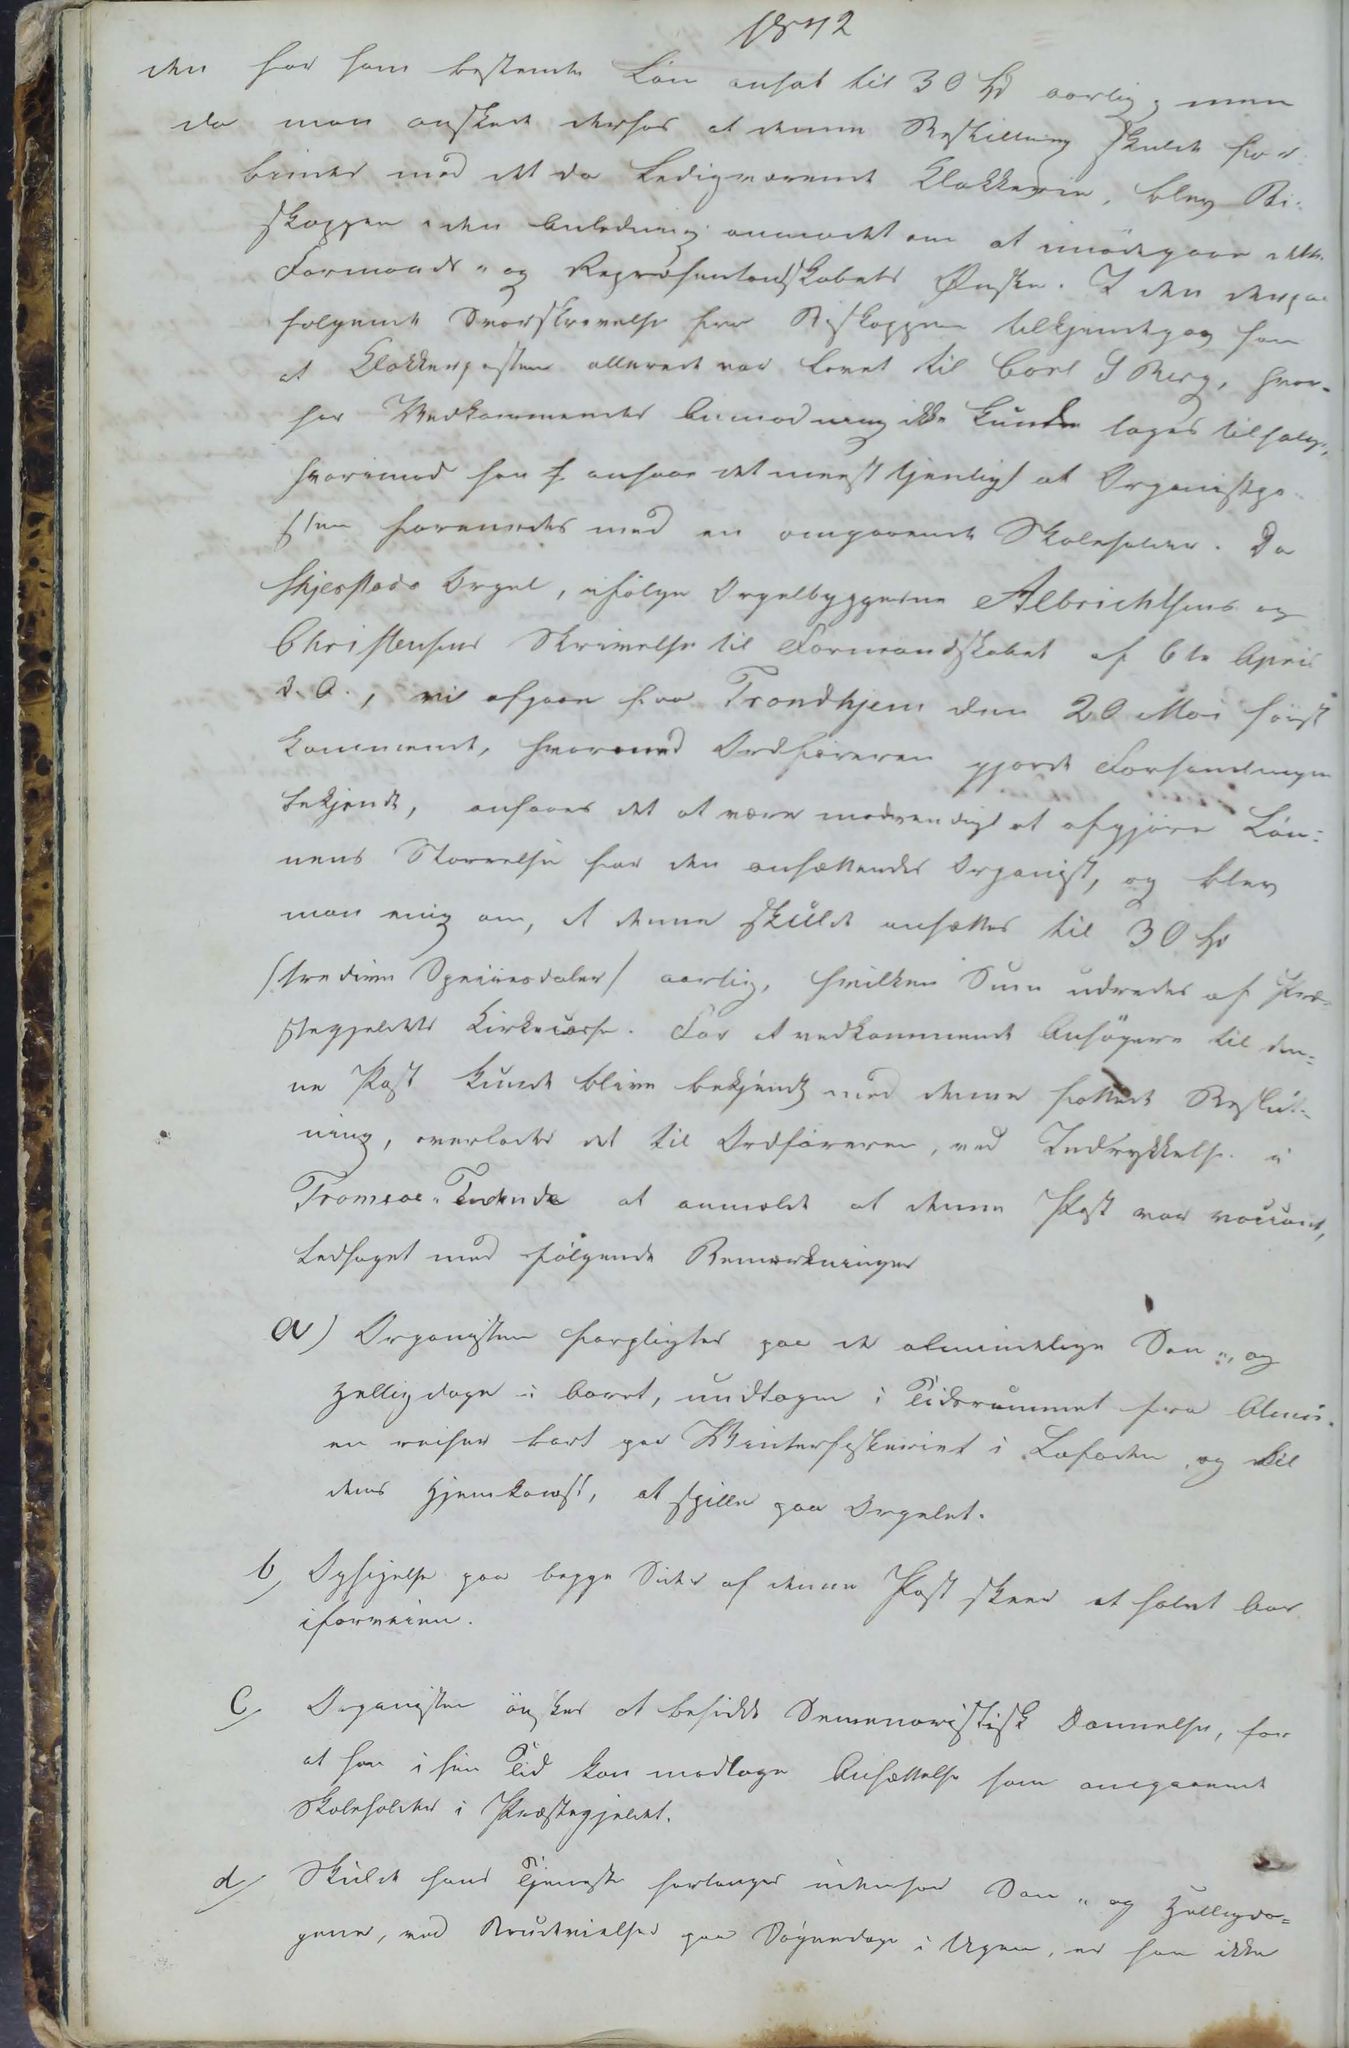 1842
den for som bestemte Løn ansat til 30 Spd aarlig, men
da man ønskede derhos at denne Bestilling skulde for-
bindes med det da ledigværende Klokkerie, blev Bi-
skoppen i den Anledning anmodet om at imødegaae dette
Formands- og Repræsentandskabets Ønske. I den derpaa
følgende Svarskrivelse fra Biskoppen tilkjendegav han
at Klokkerposten allerede var lovet til Carl J Berg, hvor-
for Vedkommendes Anmodning ikke kunde tages tilfølge,
hvorimod han ansaae det meest tjenligt at Organistpo-
sten forenedes med en omgaaende Skoleholder. Da
Skjerstads Orgel, ifølge Orgelbyggerne Albrichtsens og
Christensens Skrivelse til Formandskabet af 6te April
d. A., vil afgaae fra Trondhjem den 20 Mai først
kommende, hvormed Ordføreren gjorde Forsamlingen
bekjendt, ansaaes det at være nødvendigt at afgjøre Løn-
nens Størrelse for den ansættendes Organist, og blev
man enig om, at denne skulde ansættes til 30 Spd
/tredive Speciesdaler/ aarlig, hvilken Sum udredes af Præ-
stegjeldets Kirkecasse. For at vedkommende Ansøgere til den-
ne Post kunde blive bekjendt med denne fattede Beslut-
ning, overlodes det til Ordføreren, ved Indrykkelse i
Tromsøe-Tidende at anmelde at denne Post var vacant,
ledsaget med følgende Bemærkninger
a) Organisten forpligtes paa de almindelige Søn- og
Helligdage i Aaret, undtagen i Tidsrummet fra Almu-
en reiser bort paa Vinterfiskeriet i Lofoden og til
dens Hjemkomst, at spille paa Orgelet.
b) Opsigelse paa begge Sider af denne Post skeer et halvt Aar
iforveien.
c) Organisten ønskes at besidde Semenaristisk Dannelse, for
at han i sin Tid kan modtage Ansættelse som omgaaende
Skoleholder i Præstegjeldet.
d) Skulde hans Tjeneste forlanges udenfor Søn- og Helligda-
gene, ved Brudevielser paa Søgnedage i Ugen, er han ikke